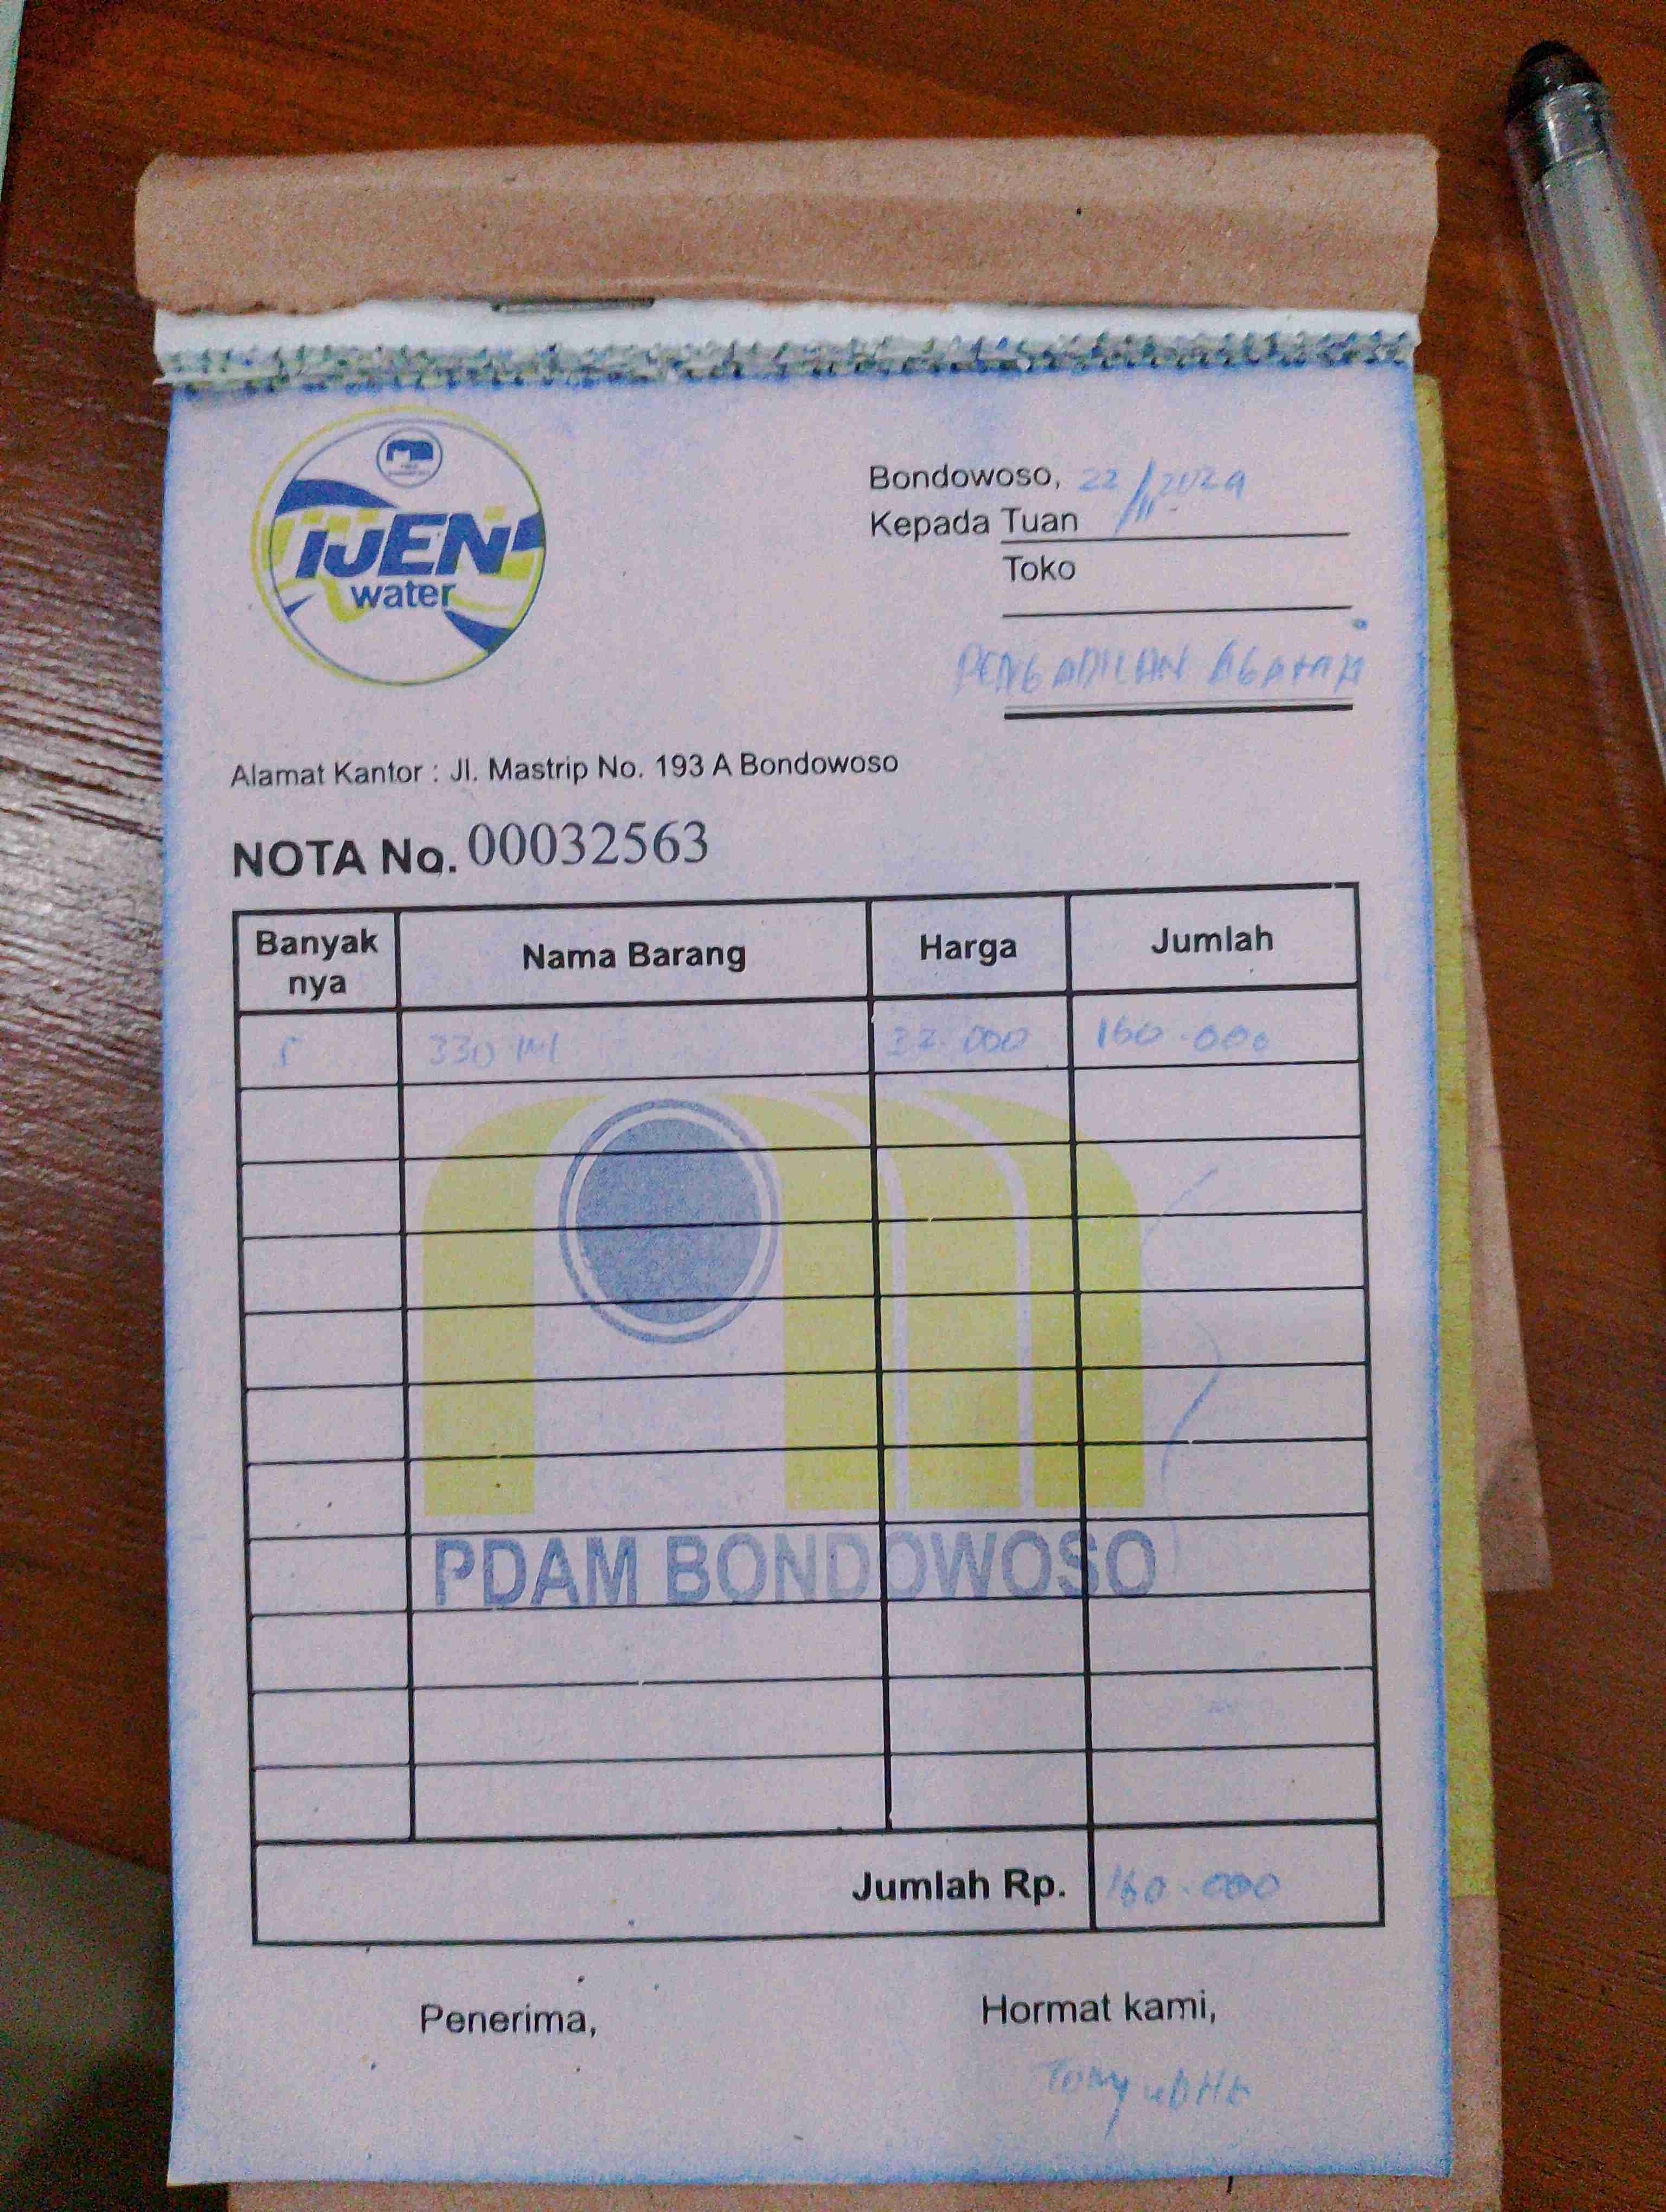 IJEN
water
Bondowoso, 22/11/2024
Kepada Tuan
Toko
PENGADILAN AGAMA
Alamat Kantor : Jl. Mastrip No. 193 A Bondowoso
NOTA No. 00032563
Banyak nya Nama Barang Harga Jumlah
5 330 Ml 32.000 160.000
PDAM BONDOWOSO
Jumlah Rp. 160.000
Penerima, Hormat kami,